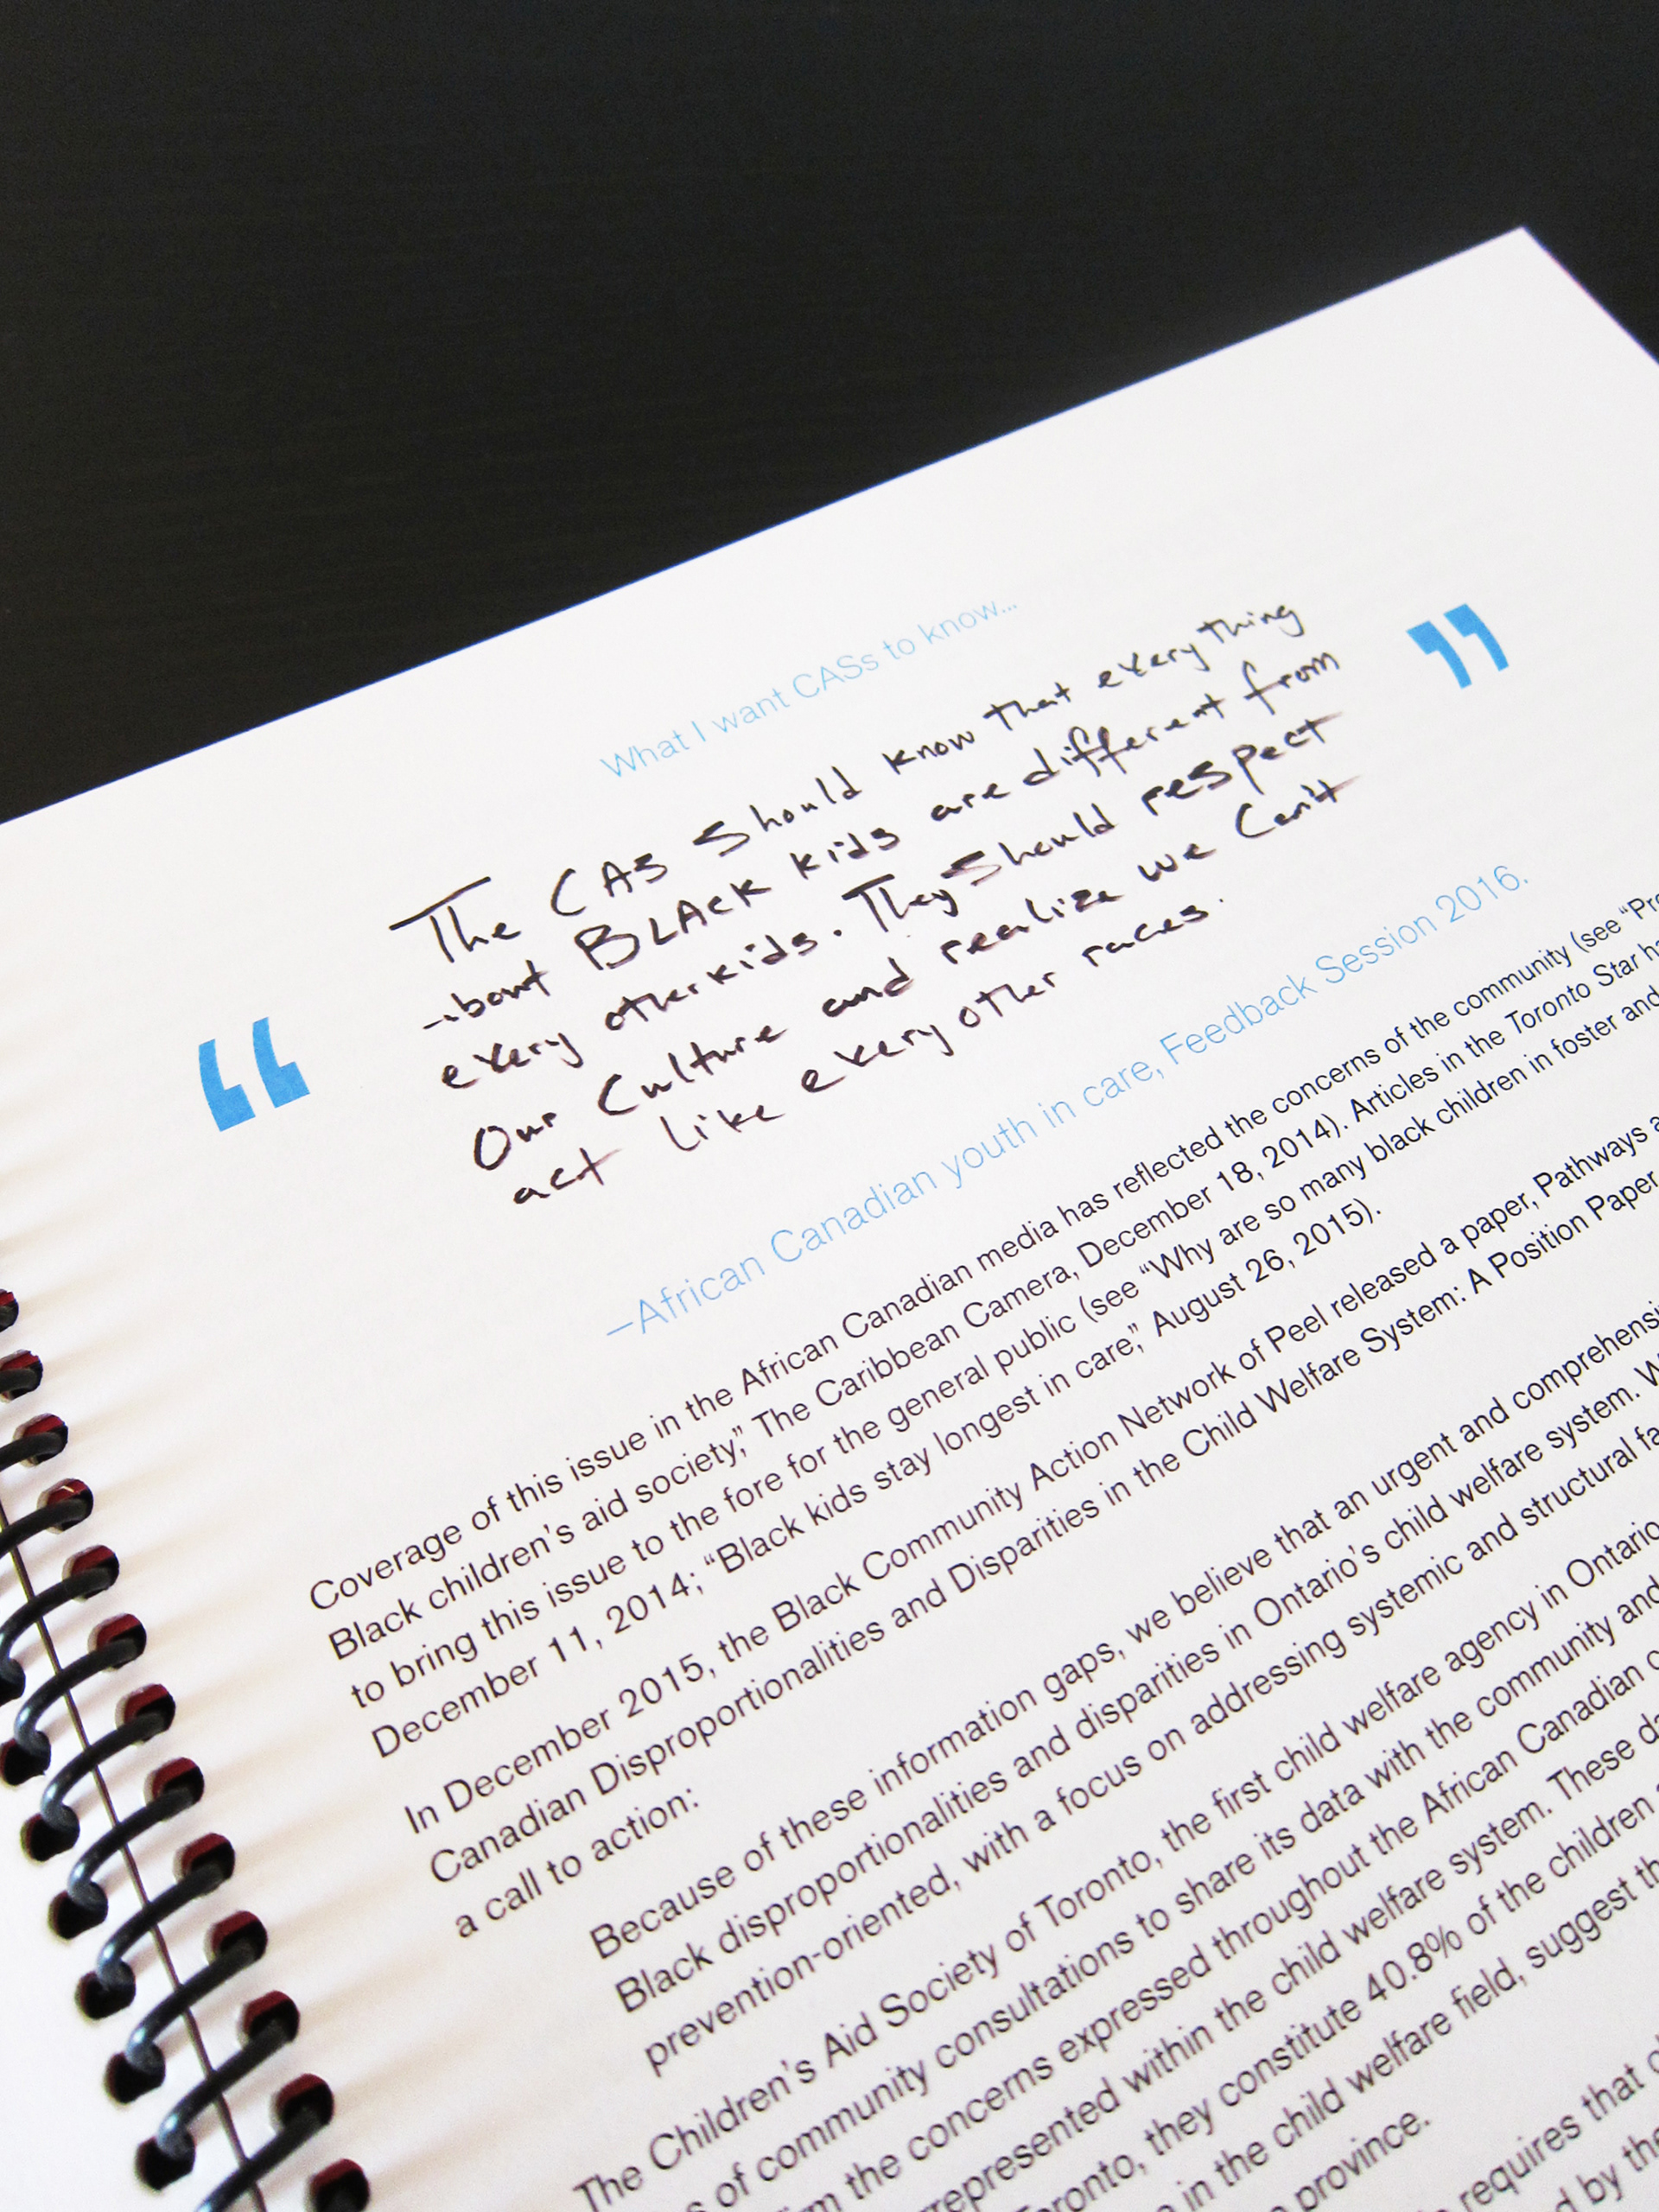 What I want CASs to know...
“
The CAS Should know that everything
about BLAcK kids are different from
every other kids. They Should respect
Our Culture and realize we Can't
act like every other races.
”
–African Canadian youth in care, Feedback Session 2016.
Coverage of this issue in the African Canadian media has reflected the concerns of the community (see “Pro
Black children's aid society,” The Caribbean Camera, December 18, 2014). Articles in the Toronto Star ha
to bring this issue to the fore for the general public (see “Why are so many black children in foster and
December 11, 2014; “Black kids stay longest in care,” August 26, 2015).
In December 2015, the Black Community Action Network of Peel released a paper, Pathways a
Canadian Disproportionalities and Disparities in the Child Welfare System: A Position Paper
a call to action:
Because of these information gaps, we believe that an urgent and comprehensi
Black disproportionalities and disparities in Ontario's child welfare system. W
prevention-oriented, with a focus on addressing systemic and structural fa
The Children's Aid Society of Toronto, the first child welfare agency in Ontario
s of community consultations to share its data with the community and
m the concerns expressed throughout the African Canadian c
rrepresented within the child welfare system. These da
oronto, they constitute 40.8% of the children
e in the child welfare field, suggest th
province.
requires that
d by the